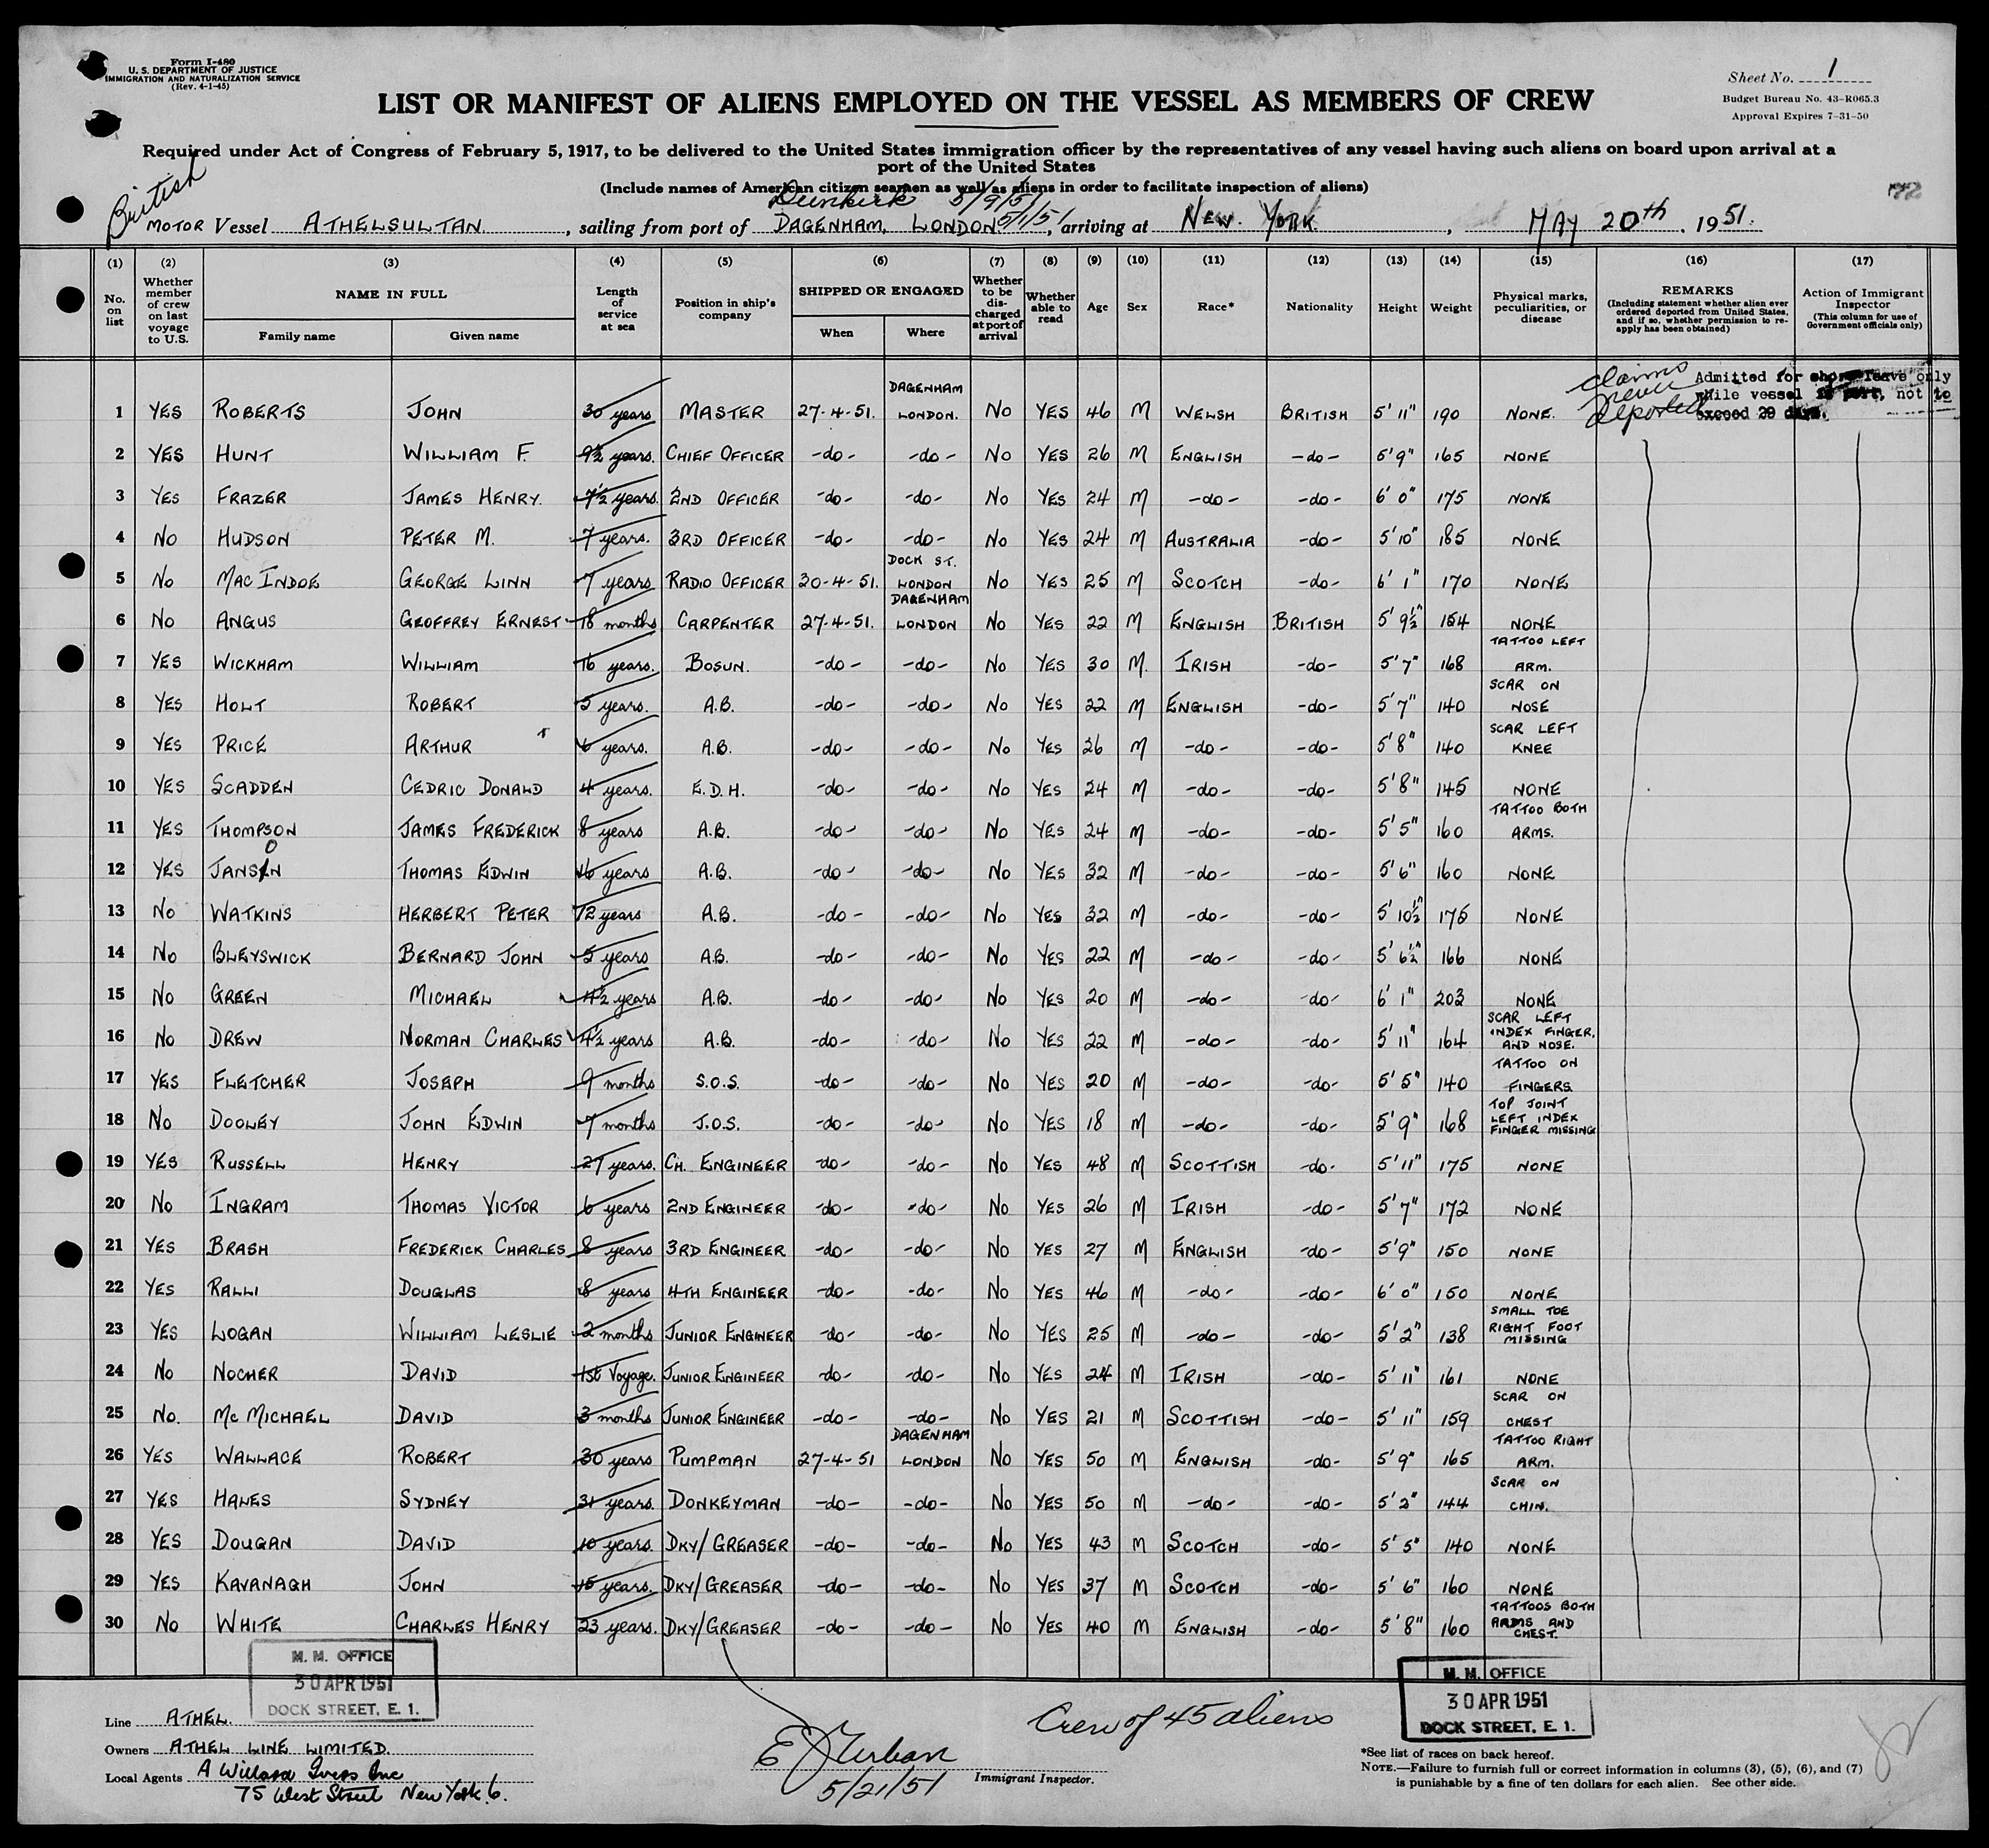 Form I-480
U. S. DEPARTMENT OF JUSTICE
IMMIGRATION AND NATURALIZATION SERVICE
(Rev. 4-1-45)
Sheet No. 1
Budget Bureau No. 43-R065.3
Approval Expires 7-31-50
LIST OR MANIFEST OF ALIENS EMPLOYED ON THE VESSEL AS MEMBERS OF CREW
Required under Act of Congress of February 5, 1917, to be delivered to the United States immigration officer by the representatives of any vessel having such aliens on board upon arrival at a
port of the United States
(Include names of American citizen seamen as well as aliens in order to facilitate inspection of aliens)
British
Dunkirk 5/9/51
MOTOR Vessel ATHELSULTAN, sailing from port of DAGENHAM, LONDON 5/1/51, arriving at NEW YORK, MAY 20th, 1951.
(1) (2) (3) (4) (5) (6) (7) (8) (9) (10) (11) (12) (13) (14) (15) (16) (17)
No. on list
Whether member of crew on last voyage to U.S.
NAME IN FULL
Family name
Given name
Length of service at sea
Position in ship's company
SHIPPED OR ENGAGED
When
Where
Whether to be discharged at port of arrival
Whether able to read
Age
Sex
Race*
Nationality
Height
Weight
Physical marks, peculiarities, or disease
REMARKS
(Including statement whether alien ever ordered deported from United States, and if so, whether permission to reapply has been obtained)
Action of Immigrant Inspector
(This column for use of Government officials only)
claims never deported
Admitted for shore leave only
while vessel in port, not to
exceed 29 days.
1 YES ROBERTS JOHN 30 years MASTER 27-4-51. DAGENHAM LONDON. No YES 46 M WELSH BRITISH 5' 11" 190 NONE.
2 YES HUNT WILLIAM F. 9½ years. CHIEF OFFICER -do- -do- No YES 26 M ENGLISH -do- 5'9" 165 NONE
3 YES FRAZER JAMES HENRY. 7½ years. 2ND OFFICER -do- -do- No YES 24 M -do- -do- 6' 0" 175 NONE
4 No HUDSON PETER M. 7 years. 3RD OFFICER -do- -do- No YES 24 M AUSTRALIA -do- 5'10" 185 NONE
5 No MAC INDOE GEORGE LINN 7 years RADIO OFFICER 30-4-51. DOCK ST. LONDON No YES 25 M SCOTCH -do- 6' 1" 170 NONE
6 No ANGUS GEOFFREY ERNEST 18 months CARPENTER 27-4-51. DAGENHAM LONDON No YES 22 M ENGLISH BRITISH 5' 9½" 154 NONE
7 YES WICKHAM WILLIAM 16 years. BOSUN. -do- -do- No YES 30 M. IRISH -do- 5'7" 168 TATTOO LEFT ARM.
8 YES HOLT ROBERT 5 years. A.B. -do- -do- No YES 22 M ENGLISH -do- 5'7" 140 SCAR ON NOSE
9 YES PRICE ARTHUR 6 years. A.B. -do- -do- No YES 26 M -do- -do- 5'8" 140 SCAR LEFT KNEE
10 YES SCADDEN CEDRIC DONALD 4 years. E.D.H. -do- -do- No YES 24 M -do- -do- 5'8" 145 NONE
11 YES THOMPSON JAMES FREDERICK 8 years A.B. -do- -do- No YES 24 M -do- -do- 5'5" 160 TATTOO BOTH ARMS.
12 YES JANSON THOMAS EDWIN 16 years A.B. -do- -do- No YES 32 M -do- -do- 5'6" 160 NONE
13 No WATKINS HERBERT PETER 12 years A.B. -do- -do- No YES 32 M -do- -do- 5' 10½" 175 NONE
14 No BLEYSWICK BERNARD JOHN 5 years A.B. -do- -do- No YES 22 M -do- -do- 5' 6½" 166 NONE
15 No GREEN MICHAEL 4½ years A.B. -do- -do- No YES 20 M -do- -do- 6' 1" 203 NONE
16 No DREW NORMAN CHARLES 4½ years A.B. -do- -do- No YES 22 M -do- -do- 5' 11" 164 SCAR LEFT INDEX FINGER, AND NOSE.
17 YES FLETCHER JOSEPH 9 months S.O.S. -do- -do- No YES 20 M -do- -do- 5' 5" 140 TATTOO ON FINGERS
18 No DOOLEY JOHN EDWIN 7 months J.O.S. -do- -do- No YES 18 M -do- -do- 5' 9" 168 TOP JOINT LEFT INDEX FINGER MISSING
19 YES RUSSELL HENRY 27 years. CH. ENGINEER -do- -do- No YES 48 M SCOTTISH -do- 5'11" 175 NONE
20 No INGRAM THOMAS VICTOR 6 years 2ND ENGINEER -do- -do- No YES 26 M IRISH -do- 5'7" 172 NONE
21 YES BRASH FREDERICK CHARLES 8 years 3RD ENGINEER -do- -do- No YES 27 M ENGLISH -do- 5'9" 150 NONE
22 YES RALLI DOUGLAS 8 years 4TH ENGINEER -do- -do- No YES 46 M -do- -do- 6' 0" 150 NONE
23 YES LOGAN WILLIAM LESLIE 2 months JUNIOR ENGINEER -do- -do- No YES 25 M -do- -do- 5'2" 138 SMALL TOE RIGHT FOOT MISSING
24 No NOCHER DAVID 1st Voyage. JUNIOR ENGINEER -do- -do- No YES 24 M IRISH -do- 5' 11" 161 NONE
25 No. Mc MICHAEL DAVID 3 months JUNIOR ENGINEER -do- -do- No YES 21 M SCOTTISH -do- 5' 11" 159 SCAR ON CHEST
26 YES WALLACE ROBERT 30 years PUMPMAN 27-4-51 DAGENHAM LONDON No YES 50 M ENGLISH -do- 5'9" 165 TATTOO RIGHT ARM.
27 YES HALES SYDNEY 31 years. DONKEYMAN -do- -do- No YES 50 M -do- -do- 5'2" 144 SCAR ON CHIN.
28 YES DOUGAN DAVID 10 years. DKY/GREASER -do- -do- No YES 43 M SCOTCH -do- 5' 5" 140 NONE
29 YES KAVANAGH JOHN 15 years. DKY/GREASER -do- -do- No YES 37 M SCOTCH -do- 5' 6" 160 NONE
30 No WHITE CHARLES HENRY 23 years. DKY/GREASER -do- -do- No YES 40 M ENGLISH -do- 5'8" 160 TATTOOS BOTH ARMS AND CHEST.
M. M. OFFICE
30 APR 1951
DOCK STREET, E. 1.
M. M. OFFICE
30 APR 1951
DOCK STREET, E. 1.
Line ATHEL.
Owners ATHEL LINE LIMITED.
Local Agents A Willard Ivers Inc
75 West Street New York 6.
5/21/51
Immigrant Inspector.
Crew of 45 aliens
*See list of races on back hereof.
NOTE.—Failure to furnish full or correct information in columns (3), (5), (6), and (7)
is punishable by a fine of ten dollars for each alien. See other side.